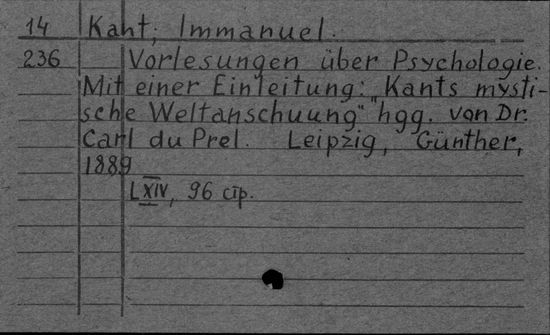 14 Kant; Immanuel.
236 Vorlesungen über Psychologie.
Mit einer Einleitung: "Kants mysti-
sche Weltanschuung" hgg. von Dr.
Carl du Prel. Leipzig, Günther,
1889
LXIV, 96 стр.